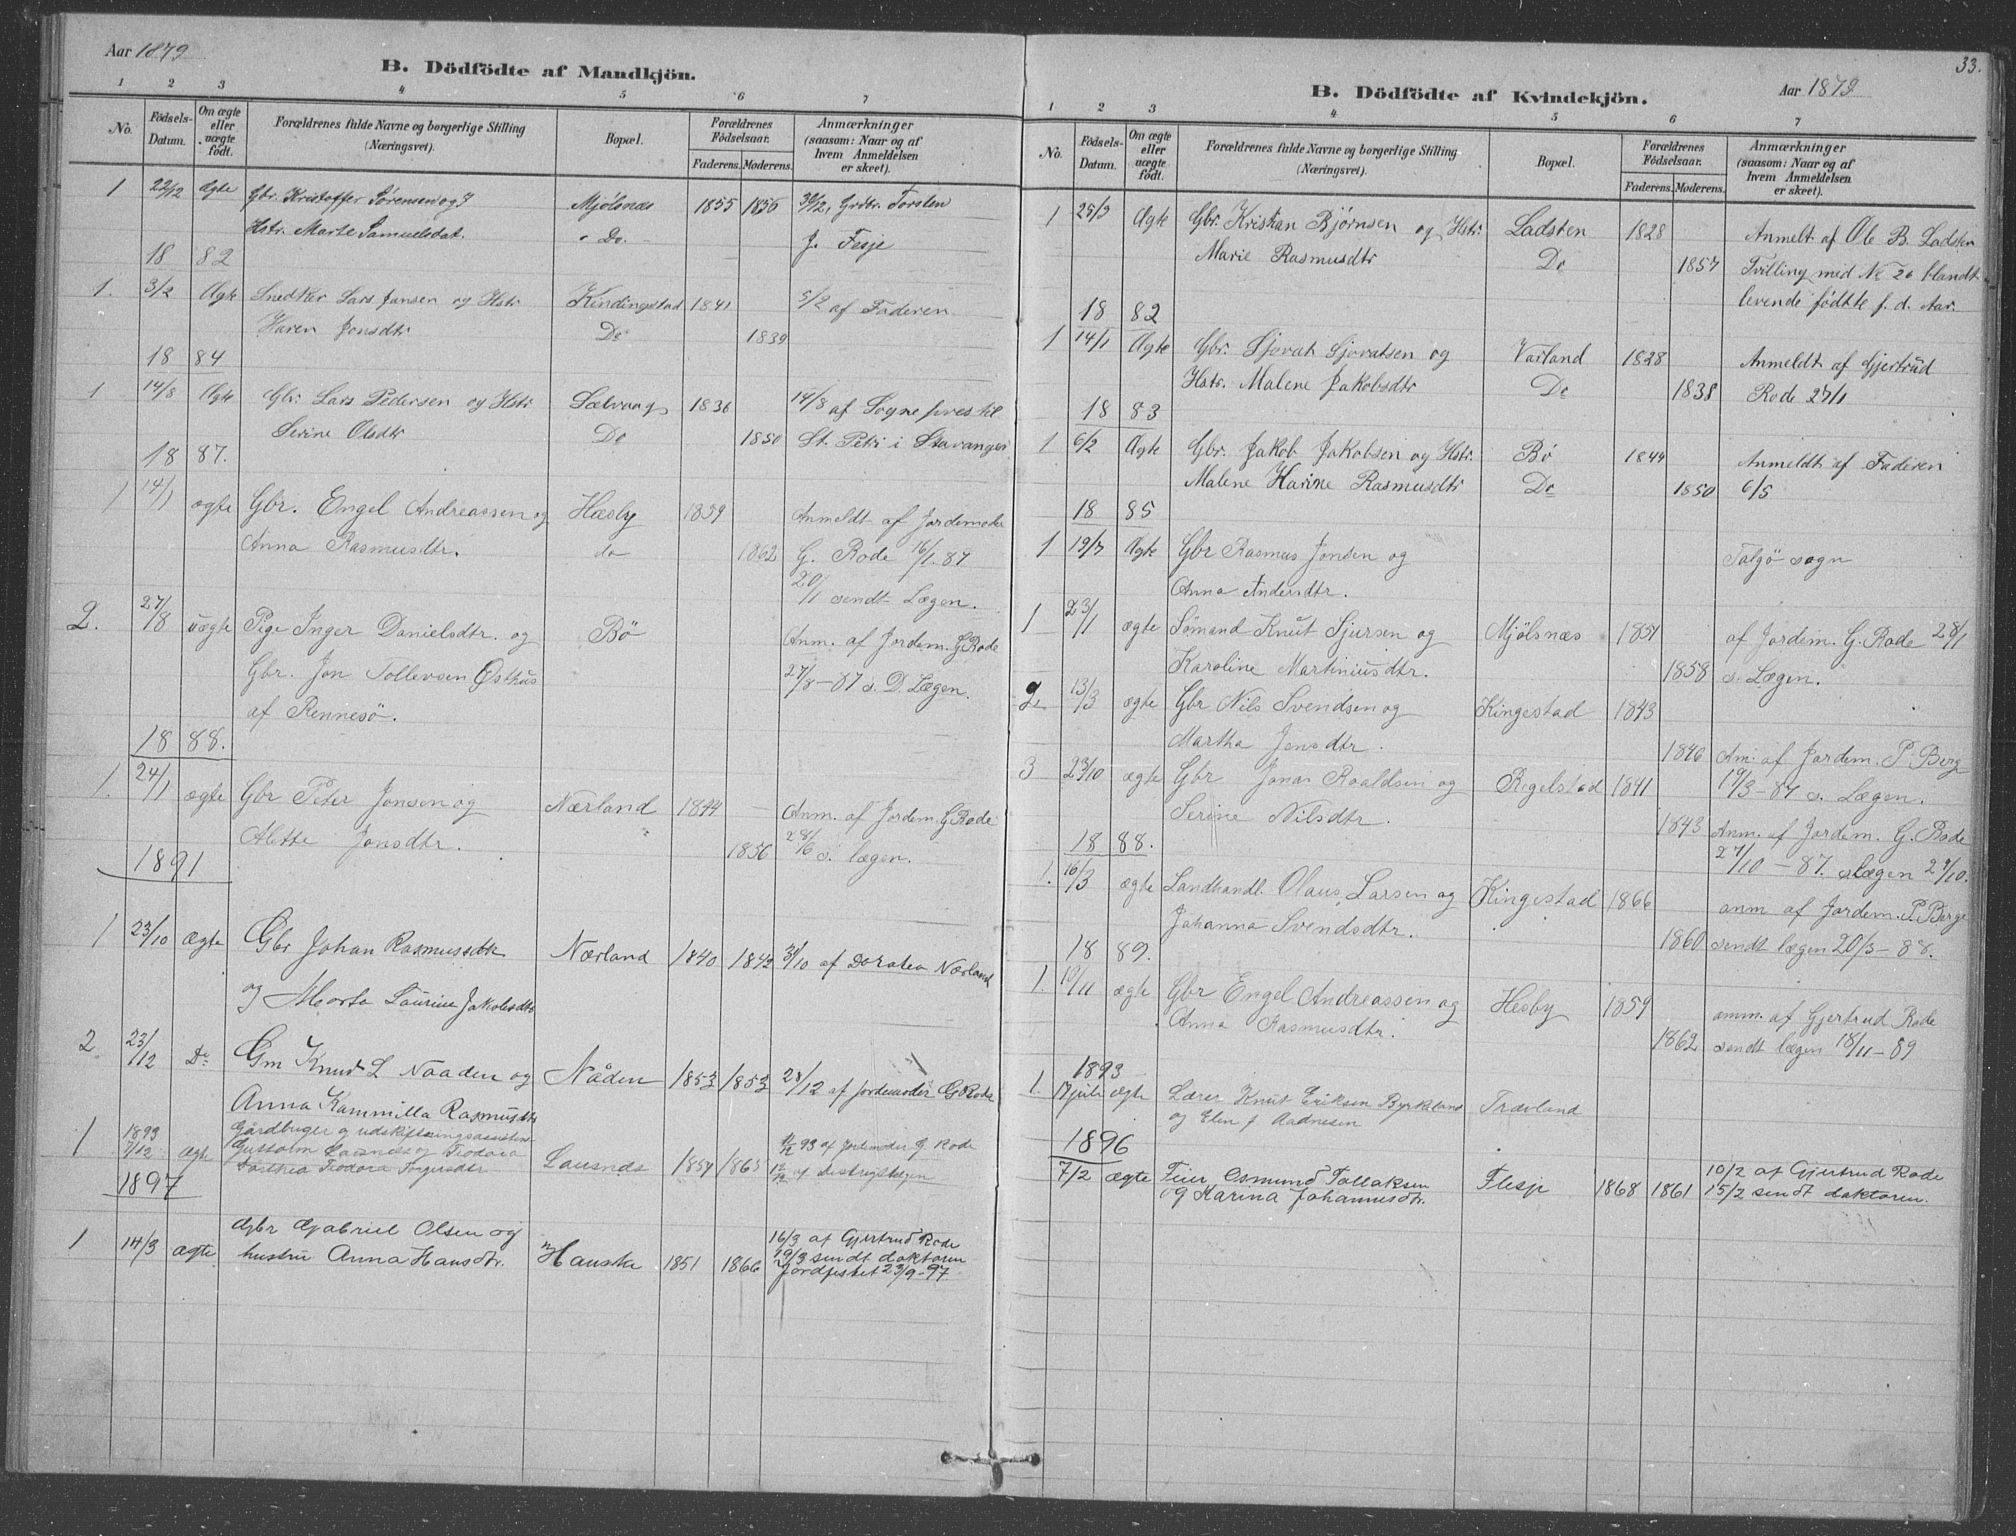 Aar 1879
B. Dödfödte af Mandkjön.
1 2 3 4 5 6 7
No. Födsels-Datum. Om ægte eller uægte födt. Forældrenes fulde Navne og borgerlige Stilling (Næringsvei). Bopæl. Forældrenes Födselsaar. Faderens. Moderens. Anmærkninger (saasom: Naar og af hvem Anmeldelsen er skeet).
1 22/2 Ægte Gbr. Kristoffer Sørensen og Mjölsnæs 1855 1856 Grdbr. Torsten
Hstr. Marte Samuelsdat. " Do. J. Fesje
18 82
1. 3/2 Ægte Snedker Lars Jansen og Hstr Kindingstad 1841 5/2 af Faderen
Karen Jonsdtr Do 1839
18 84
1 14/8 Ægte Gbr. Lars Pedersen og Hstr Sælvaag 1836 14/8 af Sognepræst til
Serine Olsdtr Do 1850 St. Petri i Stavanger
18 87.
1 14/1 ægte Gbr. Engel Andreassen og Hæsby 1859 Anmeldt af Jordemoder
Anna Rasmusdtr. do 1862 G. Rode 16/1.87
20/1 sendt Lægen.
2. 27/8 uægte Pige Inger Danielsdtr. og Bö Anm. af Jordem. G Rode
Gbr. Jon Tollevsen Østhus 27/8-87 s. D. Lægen.
af Rennesö.
18 88.
1. 24/1 ægte Gbr Peter Jonsen og Nærland 1844 Anm. af Jordem. G Rode
Alette Jonsdtr. 1856 28/6 s. lægen.
1891
1 23/10 ægte Gbr Johan Rasmussen Nærland 1840 1842 31/10 af Doratea Nærland
og Marta Laurine Jakobsdtr
2 23/12 Do Gm Knud L Naaden og Nåden 1853 1853 28/12 af jordemoder G Rode
Anna Kammilla Rasmusdtr
1 1893 7/12 ægte Gårdbruger og udskiftningsassistent
Lausnes og Teodora Lausnes 1857 1865 93 af jordemoder G Rode
Teodora af distriktslægen
1897
1 14/3 ægte Gbr Gabriel Olsen og 16/3 af Gjertrud Rode
hustru Anna Hansdtr. Hauske 1851 1866 19/3 sendt doktoren
Jordfestet 23/9-97
33.
B. Dödfödte af Kvindekjön.
Aar 1879
1 2 3 4 5 6 7
No. Födsels-Datum. Om ægte eller uægte födt. Forældrenes fulde Navne og borgerlige Stilling (Næringsvei). Bopæl. Forældrenes Födselsaar. Faderens. Moderens. Anmærkninger (saasom: Naar og af hvem Anmeldelsen er skeet).
1 25/3 Ægte Gbr. Kristian Bjørnsen og Hstr: Ladsten 1828 Anmelt af Ole B. Ladsten
Marie Rasmusdtr Do 1857 Tvilling med No 26 blandt
levende fødte f. d. Aar.
18 82
1 14/1 Ægte Gbr. Sjovat Sjovatsen og Varland 1828 Anmeldt af Gjertrud
Hstr. Malene Jakobsdtr Do 1838 Rode 27/1
18 83
1 6/2 Ægte Gbr. Jakob Jakobsen og Hstr. Bö 1844 Anmeldt af Faderen
Malene Karine Rasmusdtr Do 1850 6/5
18 85
1 19/7 Ægte Gbr Rasmus Jonsen og Talgö sogn
Anna Andersdtr.
1 23/1 ægte Sömand Knut Sjursen og Mjölsnæs 1857 af Jordem. G. Rode 28/1
Karoline Martiniusdtr. 1858 s. Lægen.
2. 13/3 ægte Gbr Nils Svendsen og Kingestad 1843
Martha Jonsdtr. 1846 Am. af Jordem. P. Berge
3 23/10 ægte Gbr Jonas Roaldsen og Regelstad 1841 19/3-87 s. Lægen.
Serine Nilsdtr. 1843 Anm. af Jordem. G. Rode
18 88. 27/10 - 87. s lægen 27/10.
1. 16/3 ægte Landhandl. Olaus Larsen og Kingestad 1866 anm af Jordem. P. Berge
Johanna Svendsdtr. 1860 sendt lægen 20/3-88.
18 89.
1. 10/11 ægte Gbr Engel Andreassen og Hesby 1859 anm. af Gjertrud Rode
Anna Rasmusdtr. 1862 sendt lægen 18/11-89
1893
1. juli ægte Lærer Knut Eriksen Byrkeland Trævland
og Elen J Aadnesen
1896
7/2 ægte Feier Osmund Tollaksen Flesje 1868 1861 10/2 af Gjertrud Rode
og Karina Johannesdtr. 15/2 sendt doktoren.